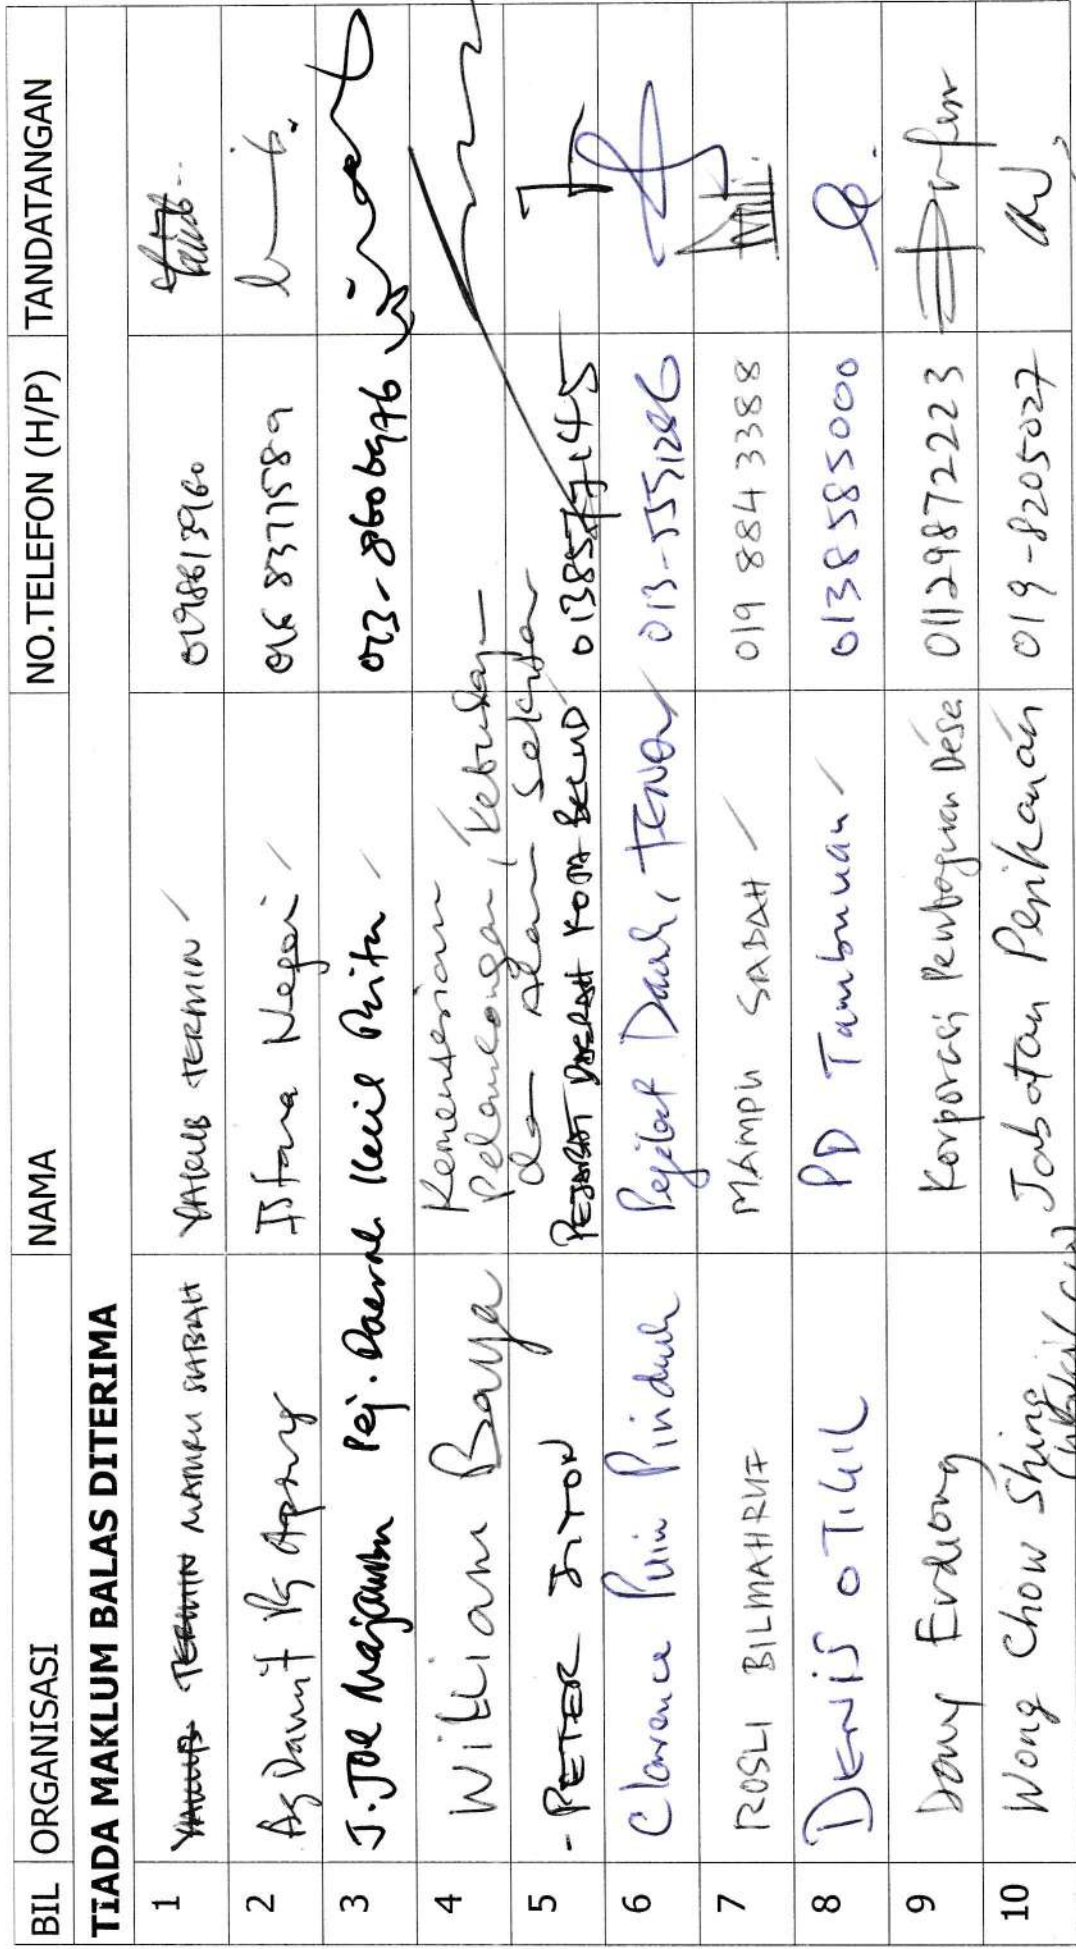 BIL ORGANISASI NAMA NO.TELEFON (H/P) TANDATANGAN
TIADA MAKLUM BALAS DITERIMA
1 YAKUB TERMIN MAMPU SABAH YAKUB TERMIN 0198613960
2 Ag Damit Pg Apong Istana Negeri 016 8371589
3 J. Joe Majamin Pej. Daerah Kecil Paitan 013-8606976
4 William Baya Kementerian
Pelancongan, Kebudaya-
5 - PETER JITON PEJABAT DAERAH KOTA BELUD 0138577145
6 Clarence Pirin Pinduh Pejabat Daerah, TENOM 013-5551286
7 ROSLI BILMAHRUF MAMPU SABAH 019 884 3388
8 DENIS OTIGIL PD Tambunan 0138585000
9 Dony Erdiong Korporasi Pembagunan Desa 01129872223
10 Wong Chow Shing Jabatan Perikanan 019-8205027